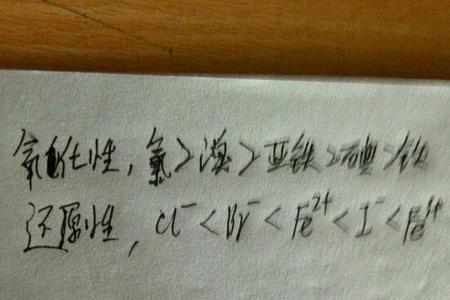 氧化性，氯>溴>亚铁>碘>铁
还原性，Cl⁻<Br⁻<Fe²⁺<I⁻<Fe³⁺